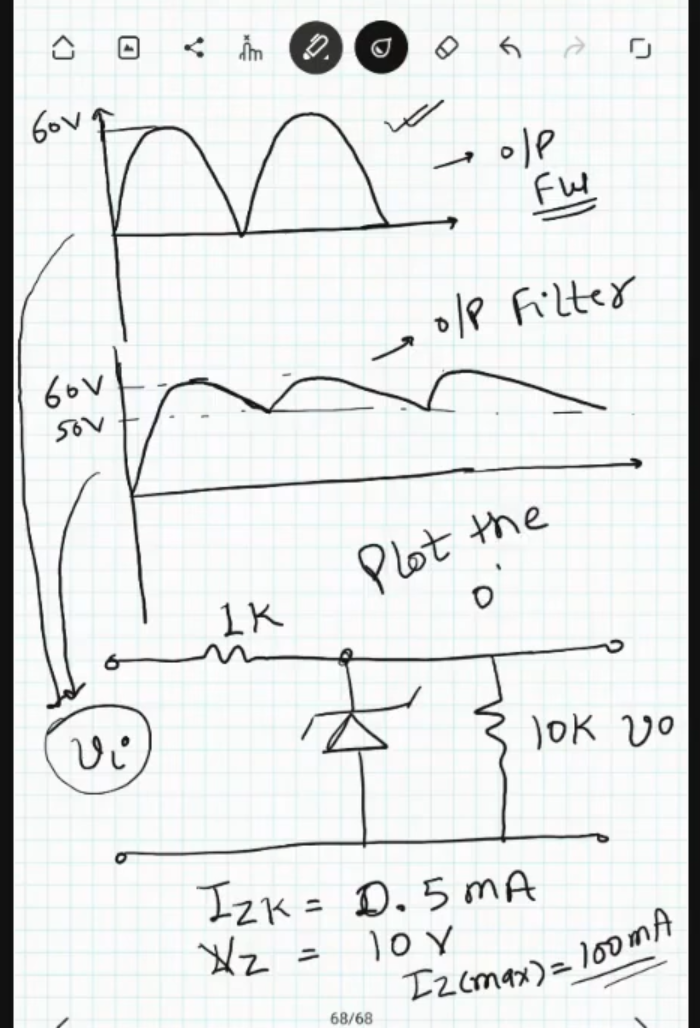 60V
o/P
FW
o/P Filter
60V
50V
Plot the
o
1K
Vi
10K vo
IZK = 0.5 mA
VZ = 10 V
IZ(max) = 100mA
68/68